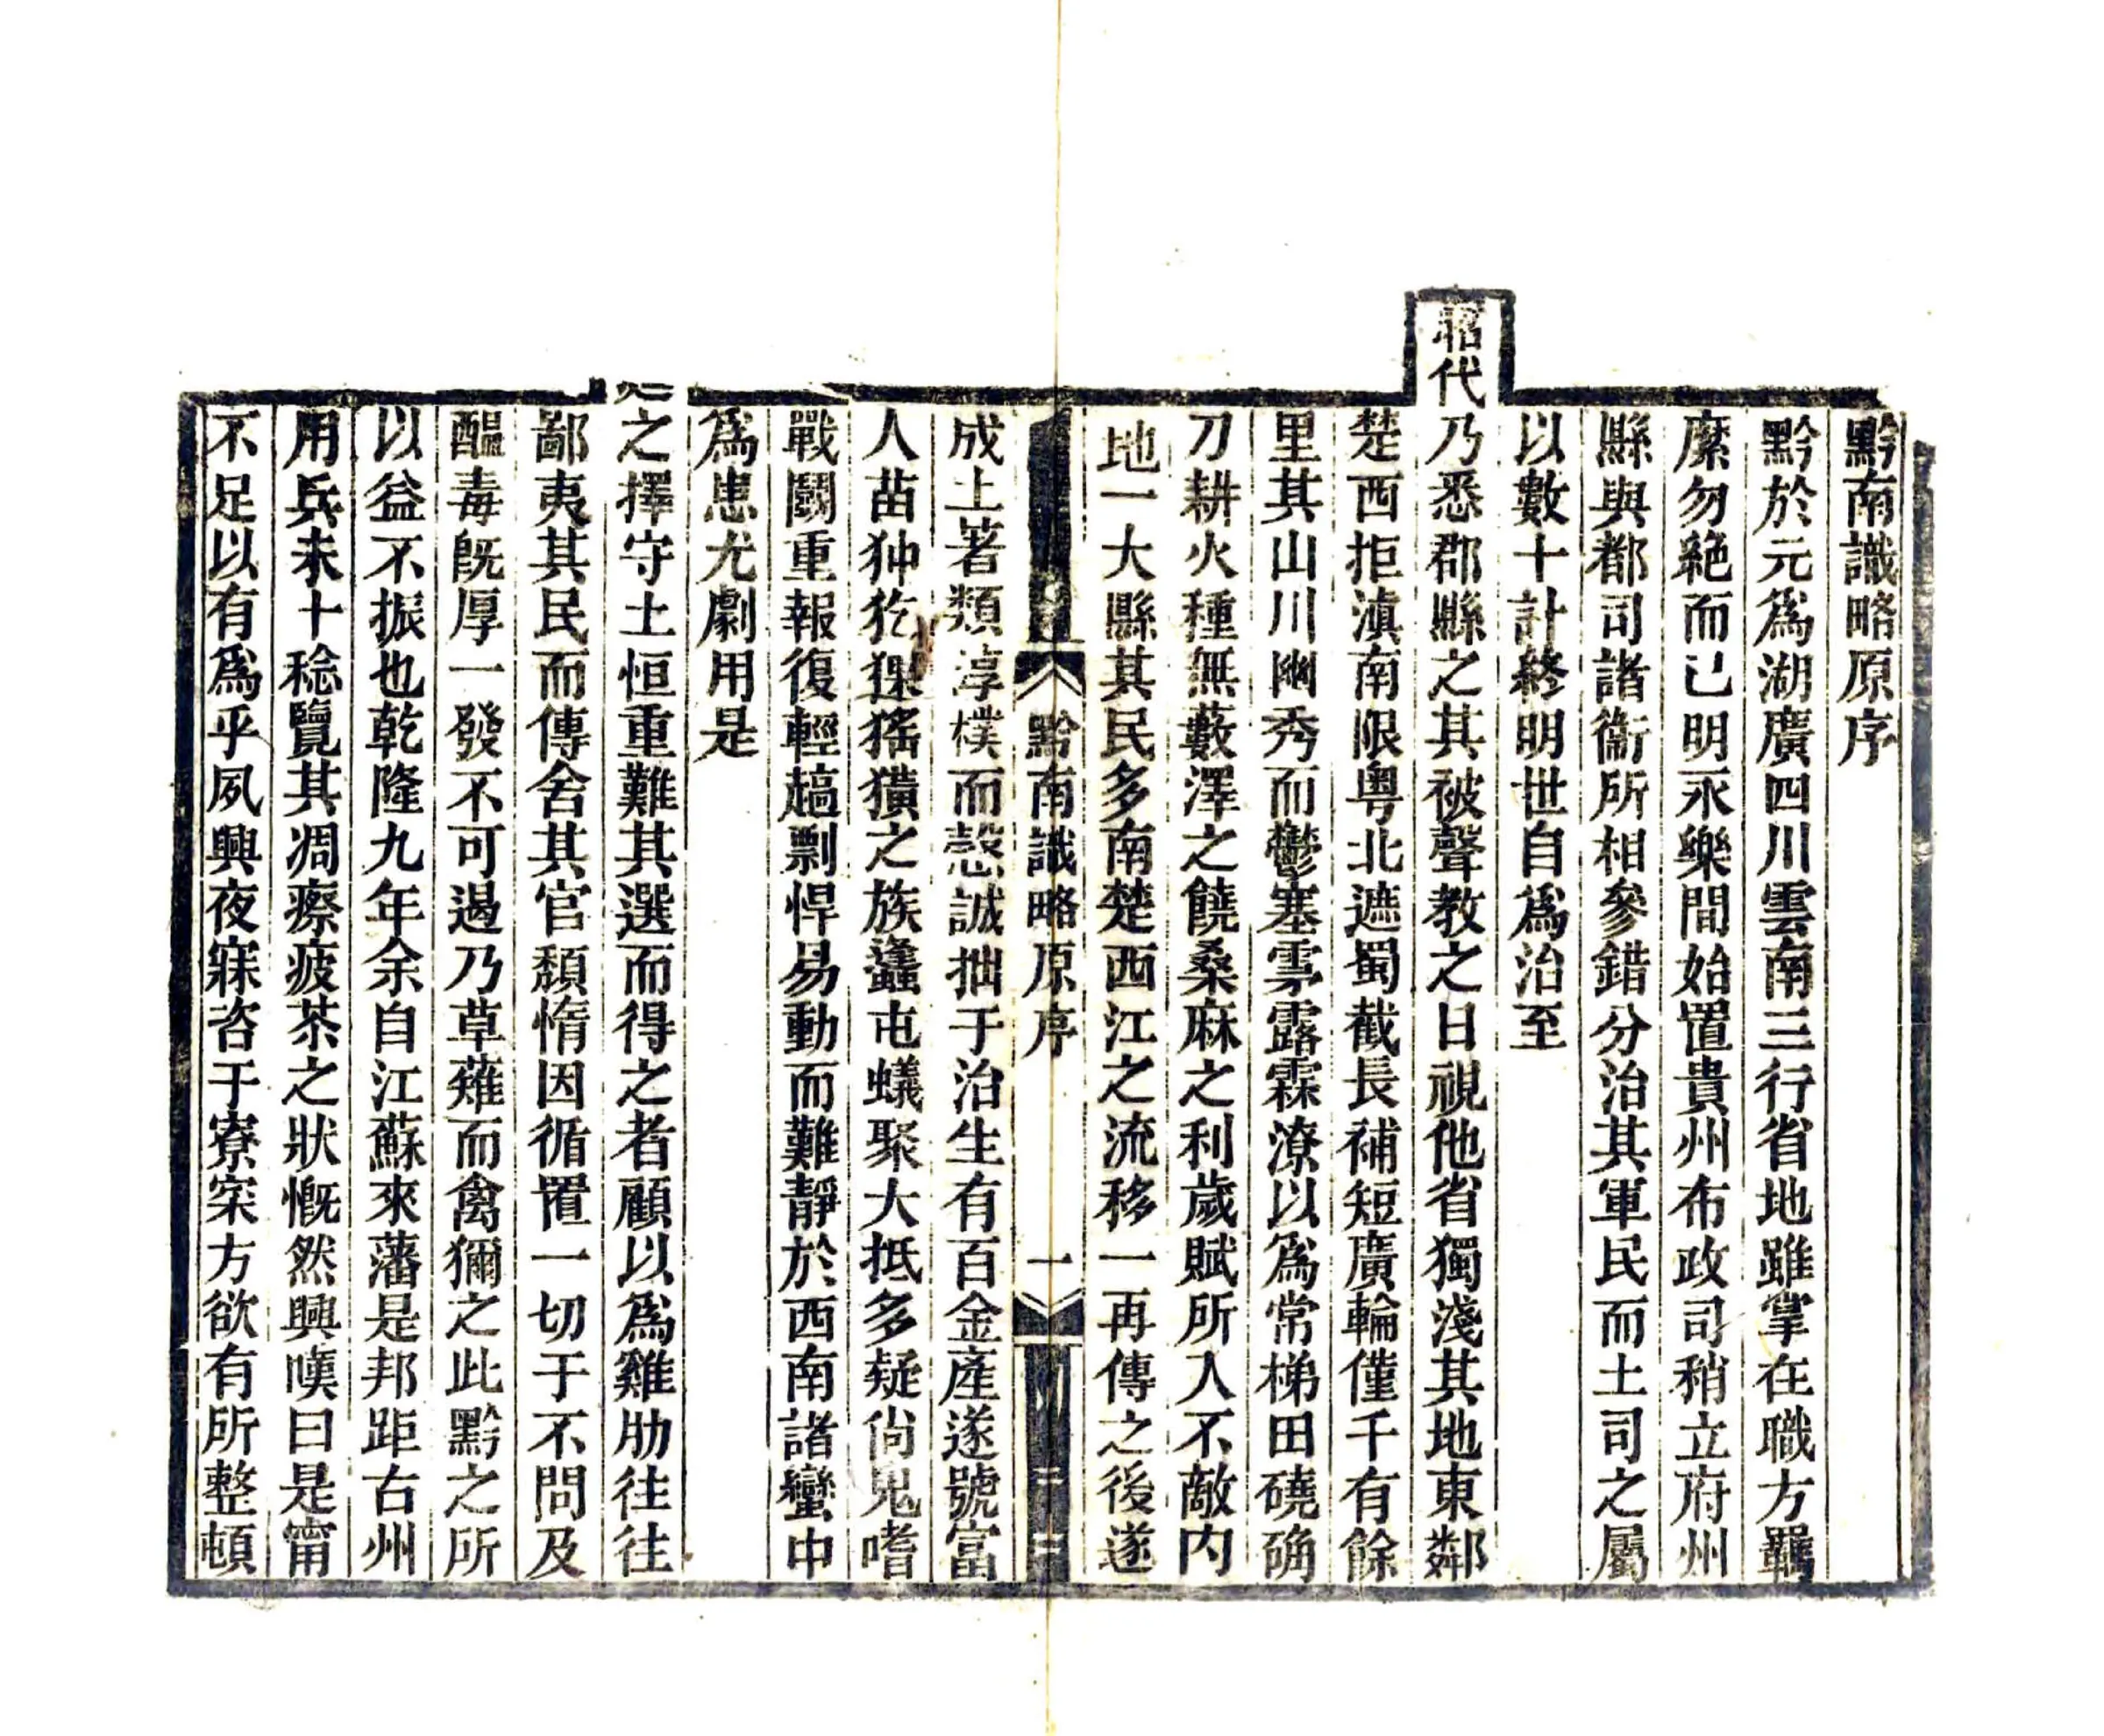 黔南識略原序
黔於元爲湖廣四川雲南三行省地雖掌在職方羈
縻勿絕而已明永樂間始置貴州布政司稍立府州
縣與都司諸衞所相參錯分治其軍民而土司之屬
以數十計終明世自爲治至
昭代乃悉郡縣之其被聲教之日視他省獨淺其地東鄰
楚西拒滇南限粵北遮蜀截長補短廣輪僅千有餘
里其山川幽秀而鬱塞雾露霖潦以爲常梯田磽确
刀耕火種無藪澤之饒桑麻之利歲賦所入不敵内
地一大縣其民多南楚西江之流移一再傳之後遂
黔南識略原序
一
成土著類淳樸而愨誠拙于治生有百金產遂號富
人苗狆犵猓猺獚之族蠭屯蟻聚大抵多疑尙鬼嗜
戰鬭重報復輕趫剽悍易動而難靜於西南諸蠻中
爲患尤劇用是
之擇守土恒重難其選而得之者顧以爲雞肋往往
鄙夷其民而傳舍其官頹惰因循置一切于不問及
醖毒旣厚一發不可遏乃草薙而禽獮之此黔之所
以益不振也乾隆九年余自江蘇來藩是邦距古州
用兵未十稔覽其凋瘵疲苶之狀慨然興嘆曰是甯
不足以有爲乎夙興夜寐咨于寮寀方欲有所整頓